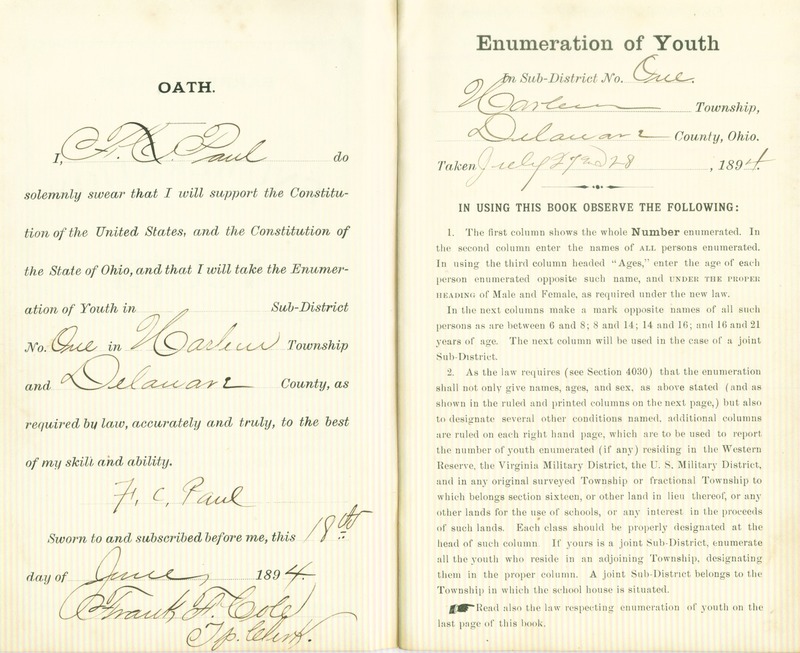 OATH.
I, F. C. Paul do
solemnly swear that I will support the Constitu-
tion of the United States, and the Constitution of
the State of Ohio, and that I will take the Enumer-
ation of Youth in Sub-District
No. One in Harlem Township
and Delaware County, as
required by law, accurately and truly, to the best
of my skill and ability.
F. C. Paul
Sworn to and subscribed before me, this 18th
day of June 1894.
Frank F. Cole
Tp. Clerk.
Enumeration of Youth
In Sub-District No. One.
Harlem Township,
Delaware County, Ohio.
Taken July 27 and 28, 1894.
IN USING THIS BOOK OBSERVE THE FOLLOWING:
1. The first column shows the whole Number enumerated. In
the second column enter the names of ALL persons enumerated.
In using the third column headed "Ages," enter the age of each
person enumerated opposite such name, and UNDER THE PROPER
HEADING of Male and Female, as required under the new law.
In the next columns make a mark opposite names of all such
persons as are between 6 and 8; 8 and 14; 14 and 16; and 16 and 21
years of age. The next column will be used in the case of a joint
Sub-District.
2. As the law requires (see Section 4030) that the enumeration
shall not only give names, ages, and sex, as above stated (and as
shown in the ruled and printed columns on the next page,) but also
to designate several other conditions named, additional columns
are ruled on each right hand page, which are to be used to report
the number of youth enumerated (if any) residing in the Western
Reserve, the Virginia Military District, the U. S. Military District,
and in any original surveyed Township or fractional Township to
which belongs section sixteen, or other land in lieu thereof, or any
other lands for the use of schools, or any interest in the proceeds
of such lands. Each class should be properly designated at the
head of such column. If yours is a joint Sub-District, enumerate
all the youth who reside in an adjoining Township, designating
them in the proper column. A joint Sub-District belongs to the
Township in which the school house is situated.
Read also the law respecting enumeration of youth on the
last page of this book.